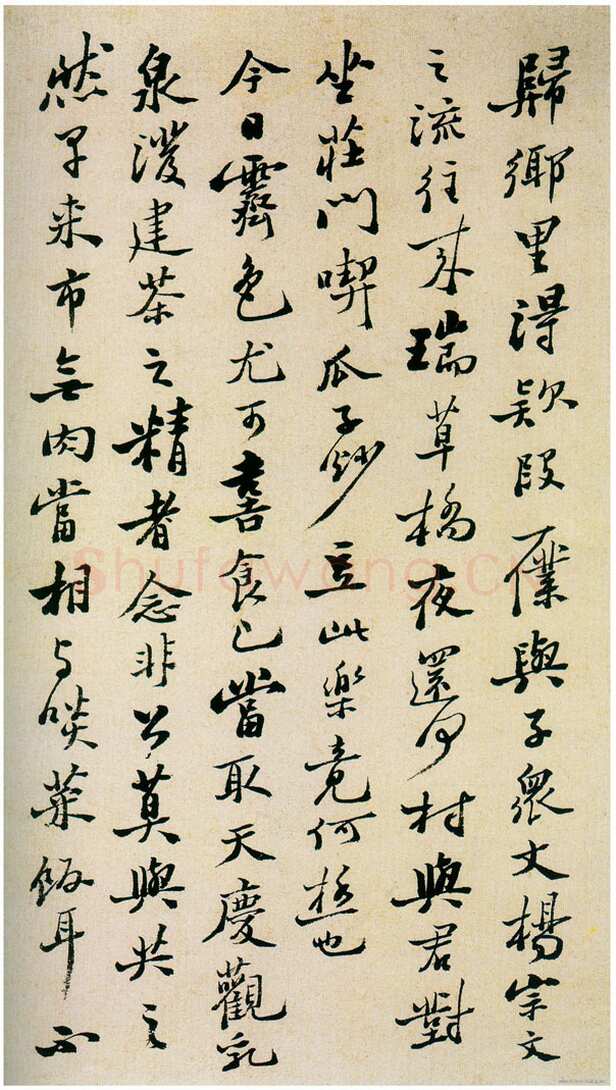 歸鄉里得款段一僕與子衆丈楊宗文
之流往来瑞草橋夜還何村與君對
坐莊門喫瓜子炒豆此樂竟何極也
今日霽色尤可喜食已當取天慶觀乳
泉潑建茶之精者念非公莫與共之
然早来市無肉當相与啖菜飯耳不
Shufawang.CN